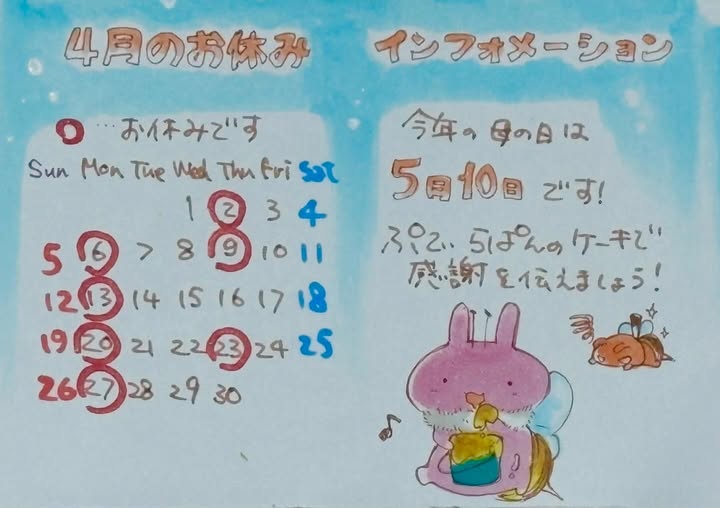 4月のお休み
○…お休みです
Sun Mon Tue Wed Thu Fri Sat
1 2 3 4
5 6 7 8 9 10 11
12 13 14 15 16 17 18
19 20 21 22 23 24 25
26 27 28 29 30
インフォメーション
今年の母の日は
5月10日です!
ぷてぃらぱんのケーキで
感謝を伝えましょう!